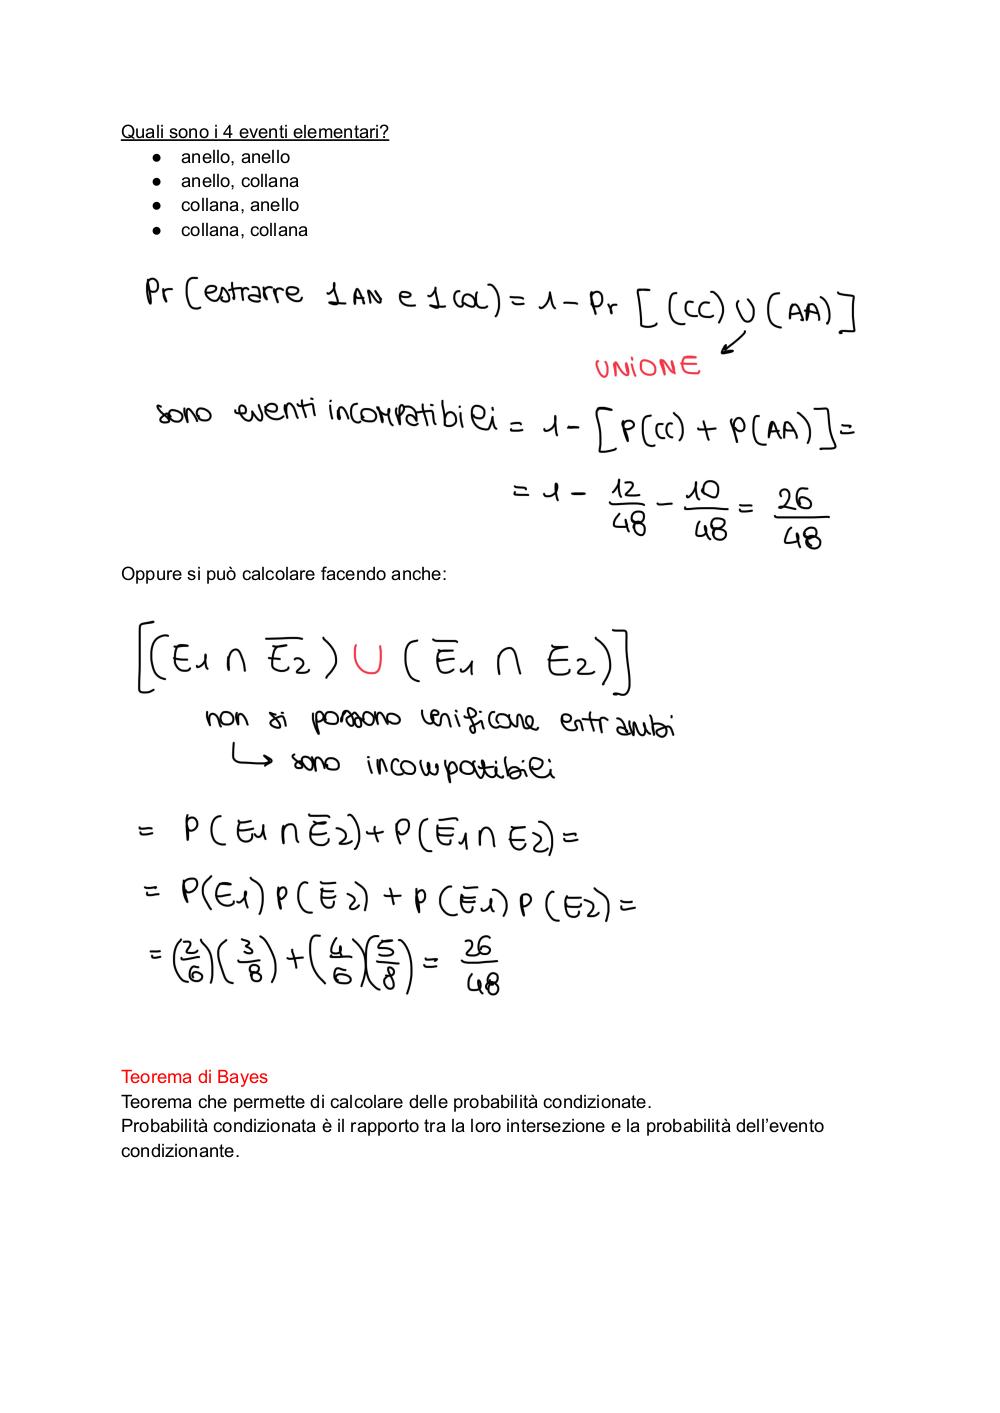 Quali sono i 4 eventi elementari?
● anello, anello
● anello, collana
● collana, anello
● collana, collana
Pr (estrarre 1 AN e 1 COL) = 1 - Pr [(CC) ∪ (AA)]
UNIONE
sono eventi incompatibili = 1 - [P(CC) + P(AA)] =
= 1 - 12/48 - 10/48 = 26/48
Oppure si può calcolare facendo anche:
[(E1 ∩ E̅2) ∪ (E̅1 ∩ E2)]
non si possono verificare entrambi
↳ sono incompatibili
= P(E1 ∩ E̅2) + P(E̅1 ∩ E2) =
= P(E1) P(E̅2) + P(E̅1) P(E2) =
= (2/6)(3/8) + (4/6)(5/8) = 26/48
Teorema di Bayes
Teorema che permette di calcolare delle probabilità condizionate.
Probabilità condizionata è il rapporto tra la loro intersezione e la probabilità dell’evento
condizionante.